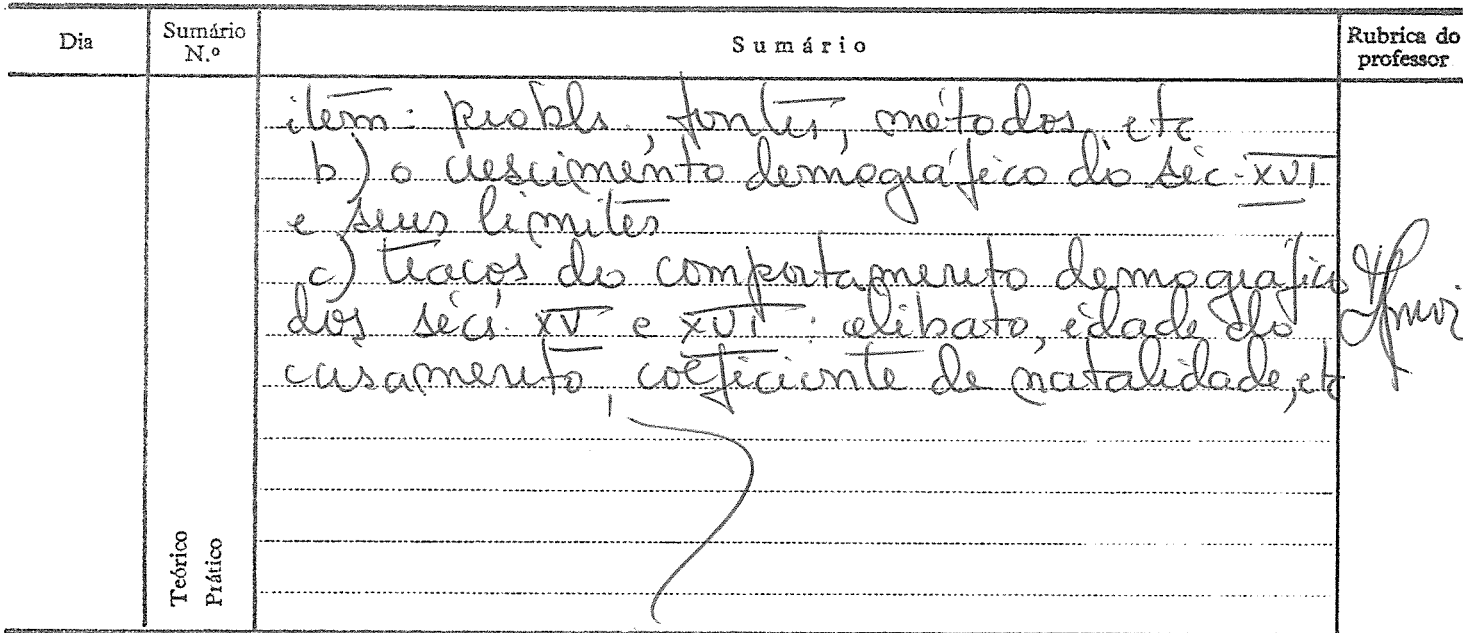 Dia
Sumário N.º
Sumário
Rubrica do professor
item: probls., fontes, métodos, etc
b) o crescimento demográfico do séc. XVI
e seus limites
c) traços do comportamento demográfico
dos sécs. XV e XVI: celibato, idade do
casamento, coeficiente de natalidade, etc
Teórico
Prático